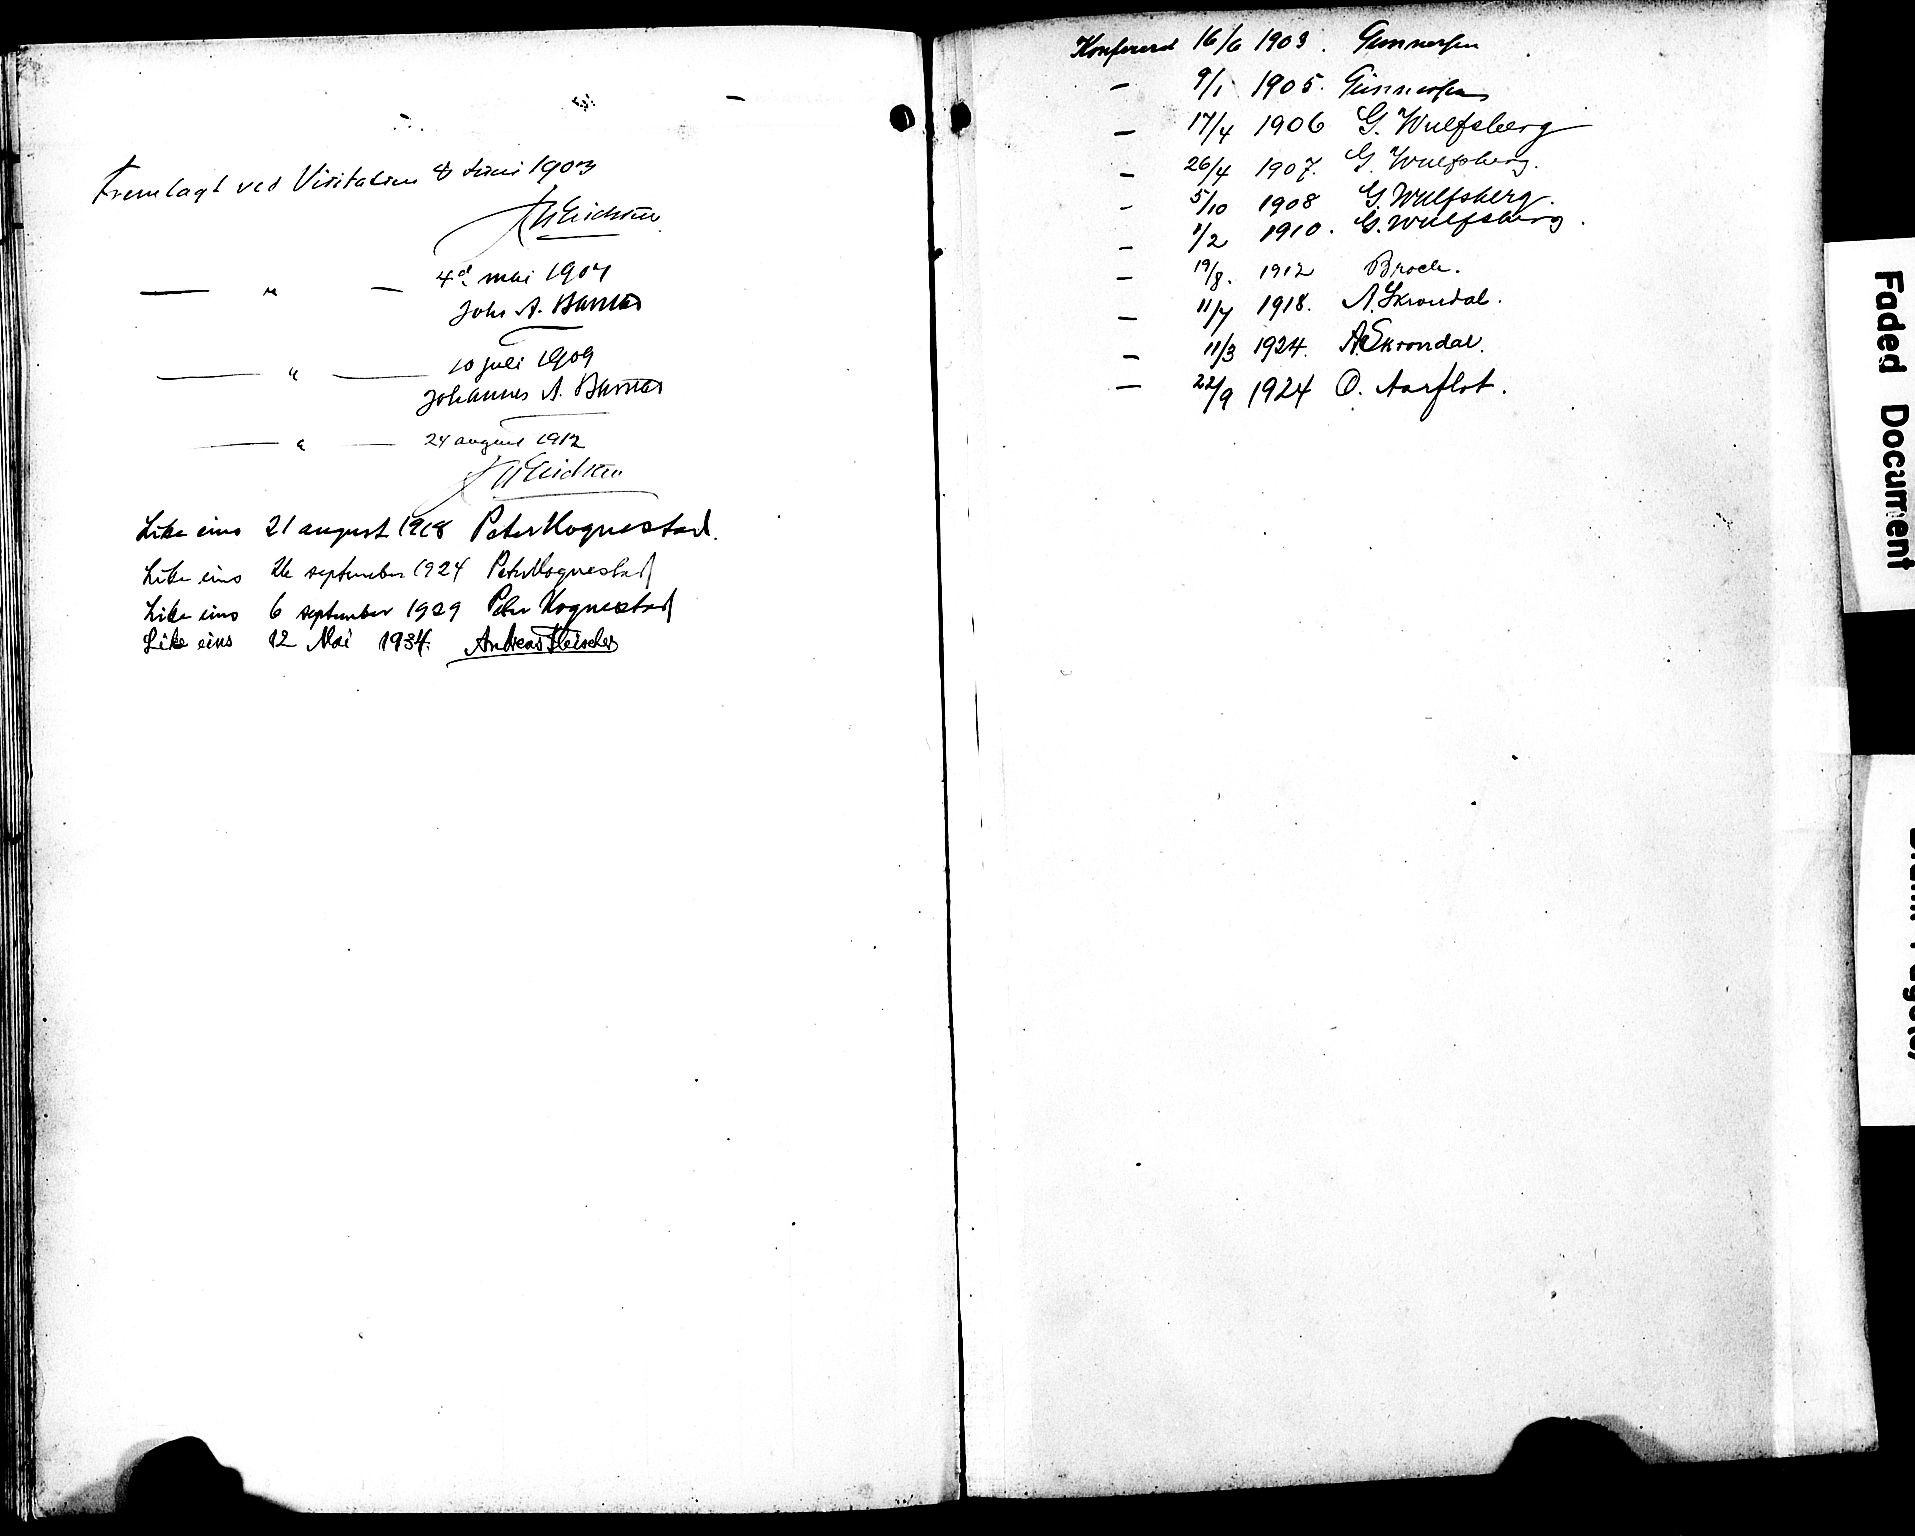 Fremlagt ved Visitation 8 Juni 1903
— " — 4d. mai 1907
Johs A. Barnes
— " — 10 juli 1909
Johannes A. Barnes
— " — 24 august 1912
Like eins 21 august 1918 Peter Hognestad.
Like eins 26 september 1924 Peter Hognestad
Like eins 6 september 1929 Peter Hognestad
Like eins 12 Mai 1934. Andreas Fleischer
Konfererd 16/6 1903. Gunnersen
— 9/1 1905. Gunnersen
— 17/4 1906 G. Wulfsberg
— 26/4 1907. G. Wulfsberg.
— 5/10 1908 G. Wulfsberg.
— 1/2 1910. G. Wulfsberg.
— 19/8. 1912 Broch.
— 11/7 1918. A. Skrondal.
— 11/3 1924. A. Skrondal.
— 22/9 1924 O. Aarflot.
Faded Document